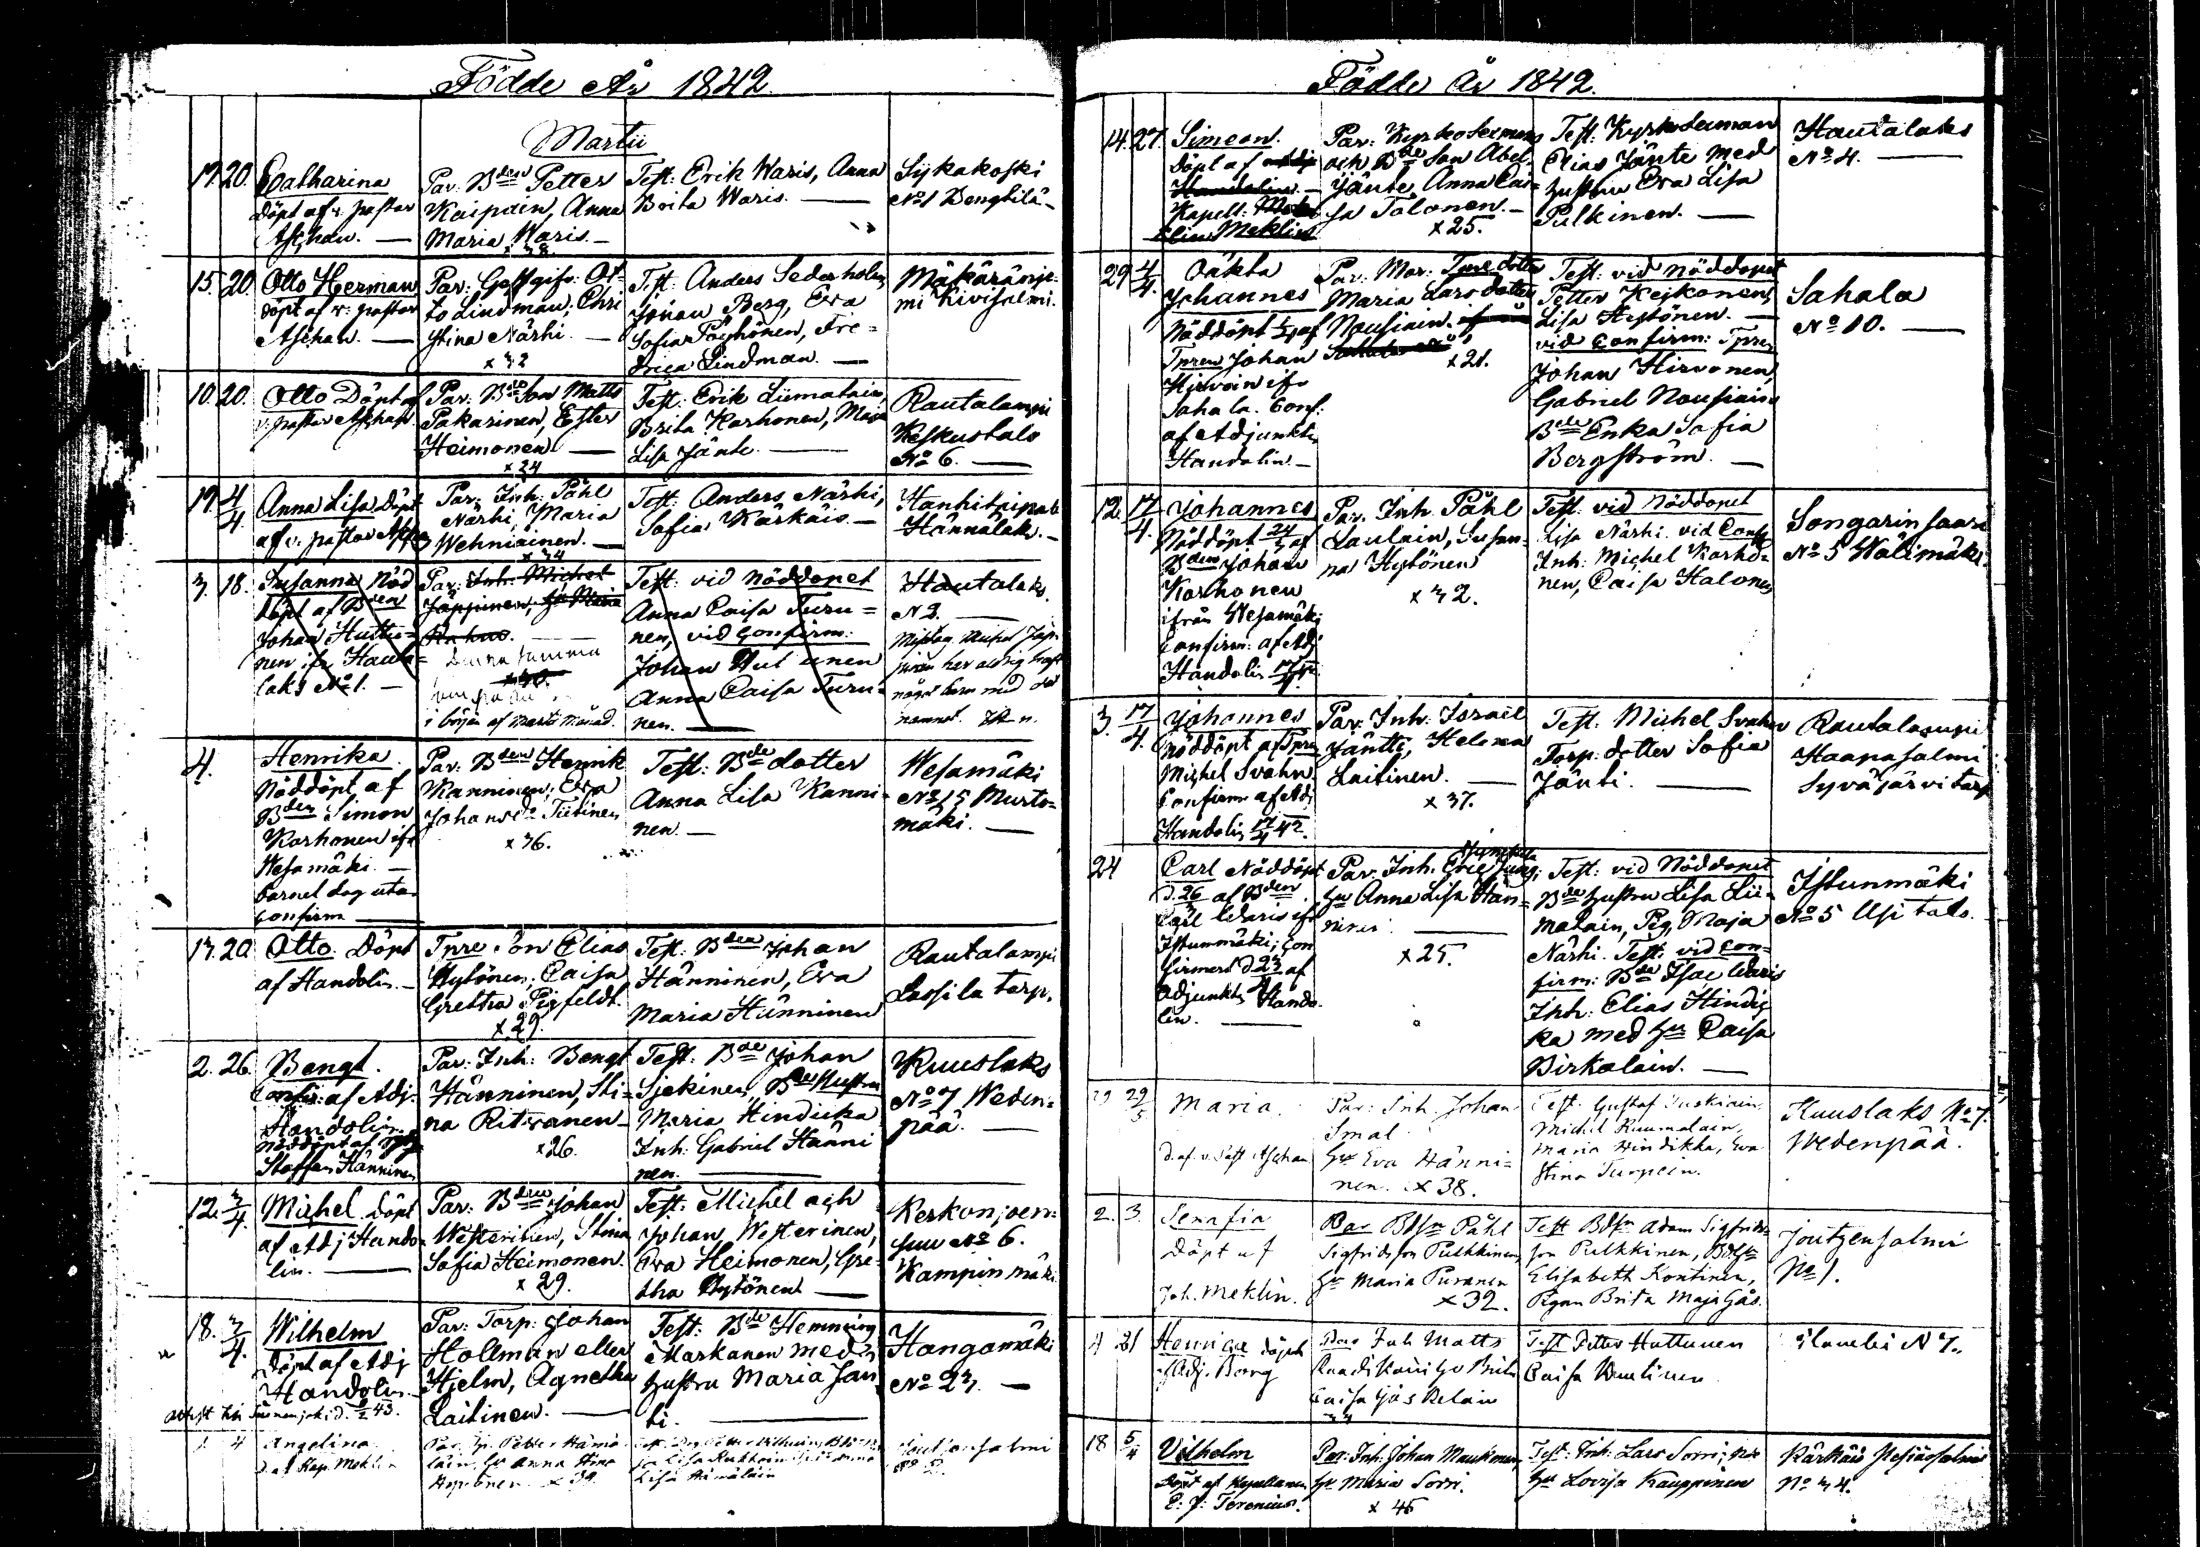 Födde År 1842.
Martii
17. 20. Catharina
Döpt af v. pastor
Aschan. —
Par: Bden Petter
Kaipain, Anna
Maria Waris. —
x 38.
Test: Erik Waris, Anna
Brita Waris. —
Sykäkoski
No 1 Bengtilä —
15. 20. Otto Herman
Döpt af v: pastor
Aschan. —
Par: Gästgifv: Ot-
to Lindman, Chri
stina Närhi. —
x 32
Test: Anders Sederholm,
Johan Berg, Eva
Sofia Pöyhönen, Fre=
drica Lindman. —
Kivisalmi.
10. 20. Otto Döpt af
v: pastor Aschan.
Par: Bde Son Matts
Pakarinen, Ester
Heimonen —
x 24
Test: Erik Liimatain,
Brita Korhonen, Maja
Lisa Jänte. —
Rautalampi
Keskustalo
No 6. —
19. 4/4. Anna Lisa Döpt
af v. pastor
Par: Inh: Påhl
Närhi, Maria
Wehniäinen. —
x 34
Test: Anders Närhi,
Sofia Kärkäis. —
Hännälaks. —
3. 18. Susanna Nöd
döpt af Bden
Johan Huttu=
nen ifr Hauta=
laks No 1. —
Par: Inh: Michel
Jäppinen, Hu Maria
Denna samma
i början af Martii Månad.
Test: vid Nöddopet
Anna Caisa Turu=
nen, vid Confirm:
Johan Hut unen
Anna Caisa Turu=
nen. —
Hautalaks
N 2. —
Misstag Michel Jäp-
4. Henrika
Nöddöpt af
Bden Simon
Korhonen ifr
Wesamäki —
barnet dog utan
Confirm —
Par: Bden Henrik
Kanninen, Eva
Johansdr Tiitinen
x 36.
Test: Bde dotter
Anna Lisa Kanni-
nen. —
Wesamäki
No 15 Murto=
mäki. —
13. 20. Otto. Döpt
af Handolin. —
Son Elias
Hytönen, Caisa
Gretha
x 29.
Test: Bden Johan
Hänninen, Eva
Maria Hänninen
Rautalampi
Lassila torp.
2. 26. Bengt.
Confir: af Adj.
Handolin.
Nöddöpt af
Staffan Hänninen
Par: Inh: Bengt
Hänninen, Sti-
na Ritvanen —
x 26.
Test: Bde Johan
Bde Hustru
Maria Hindicka
Inh: Gabriel Hänni
nen. —
Kuuslaks
No 7 Weden=
pää. —
12. 3/4. Michel Döpt
af Adj Hando-
lin. —
Par: Bden Johan
Westerinen, Stina
Sofia Heimonen.
x 29.
Test: Michel och
Johan Westerinen,
Eva Heimonen, Gre-
tha Hytönen —
Kerkonjoen=
suu No 6.
Kampinmäki
18. 3/4. Wilhelm
Döpt af Adj
Handolin. —
Par: Torp: Johan
Hollman eller
Hjelm, Agnetha
Laitinen. —
Test: Bde Hemming
Markanen med
hustru Maria Jan
ti. —
Hangamäki
No 23. —
4 Angelina
Döpt af Kap. Meklin
Petter Hämä-
läin, Hu Anna Stina
x 39.
Lisa Hämäläin
Födde År 1842.
14. 27. Simeon.
Döpt af
Handolin —
Kapell:
Meklin
Par: Kyrkosexmans
och Bde Son Abel
Jänte, Anna Cai=
sa Talonen. —
x 25.
Test: Kyrkosexman
Elias Jänte med
hustru Eva Lisa
Pulkinen. —
Hautalaks
No 4. —
29 4/4. Oäkta
Johannes
Nöddöpt af
Johan
Hirvoin ifr
Sahala. Conf:
af Adjunkten
Handolin —
Par: Mor: dotter
Maria Larsdotter
Nousiain.
x 21.
Test: vid Nöddopet
Petter Keikonen,
Lisa Hytönen. —
vid Confirm:
Johan Hirvonen,
Gabriel Nousiain
Bde Enka Sofia
Bergström. —
Sahala
No 10. —
12. 17/4. Johannes
Nöddöpt 24/3 af
Bden Johan
Korhonen
ifrån Wesamäki
Confirm: af Adj
Handolin
Par. Inh. Påhl
Laulain, Susan-
na Hytönen
x 32.
Test. vid Nöddopet
Lisa Närhi. vid Conf
Inh: Michel Korho=
nen, Caisa Halonen
Songarinsaari
No 5 Wälimäki
3. 17/4. Johannes
Nöddöpt af
Michel Svahn
Confirm af Adj
Handolin 17/4 42.
Par: Inh: Israel
Jäntti, Helena
Laitinen. —
x 37.
Test: Michel Svahn
Torp: dotter Sofia
Jänti. —
Rautalampi
Haapasalmi
Syväjärvi torp
24 Carl Nöddöpt
d. 26 af Bden
Carl Waris ifr
Istunmäki, Con
firmerd d 23/4 af
Adjunkt Hando-
lin. —
Par: Inh. Eric
Hu Anna Lisa Hän=
ninen. —
x 25.
Test: vid Nöddopet
Bde hustru Lisa Lii=
matain, Pig. Maja
Närhi. Test: vid Con=
firm: Bde Isac Waris
Inh: Elias Hindic
ka med Hu Caisa
Pirkalain. —
Istunmäki
No 5 Usi talo.
29/5 Maria.
D. af. v. Past Aschan
Par: Inh. Johan
Smal
Hu Eva Hänni=
nen. x 38.
Test: Gustaf
Michel Ruumalain,
Maria Hindikka, Eva
Stina Turpein.
Kuuslaks No 7.
Wedenpää.
2. 3. Serafia
Döpt af
Joh. Meklin.
Par Bdsn Påhl
Sigfridsson Pulkkinen,
Hu Maria Puranen
x 32.
Test Bdsn Adam Sigfrids-
son Pulkkinen,
Elisabeth Kontinen,
Pigan Brita Maja Gås.
Joutzensalmi
No 1.
21 Henrica Döpt
af Adj. Borg
Par Inh Matts
Caisa
Test Petter Huttunen
Caisa
N 7.
18 5/4 Vilhelm
Döpt af Kapellanen
Par: Inh: Johan Mankinen,
Hu Maria Sorri.
x 45
Test: Inh: Lars Sorri,
Hu Lovisa Kauppinen
Kärkäis
No 34.